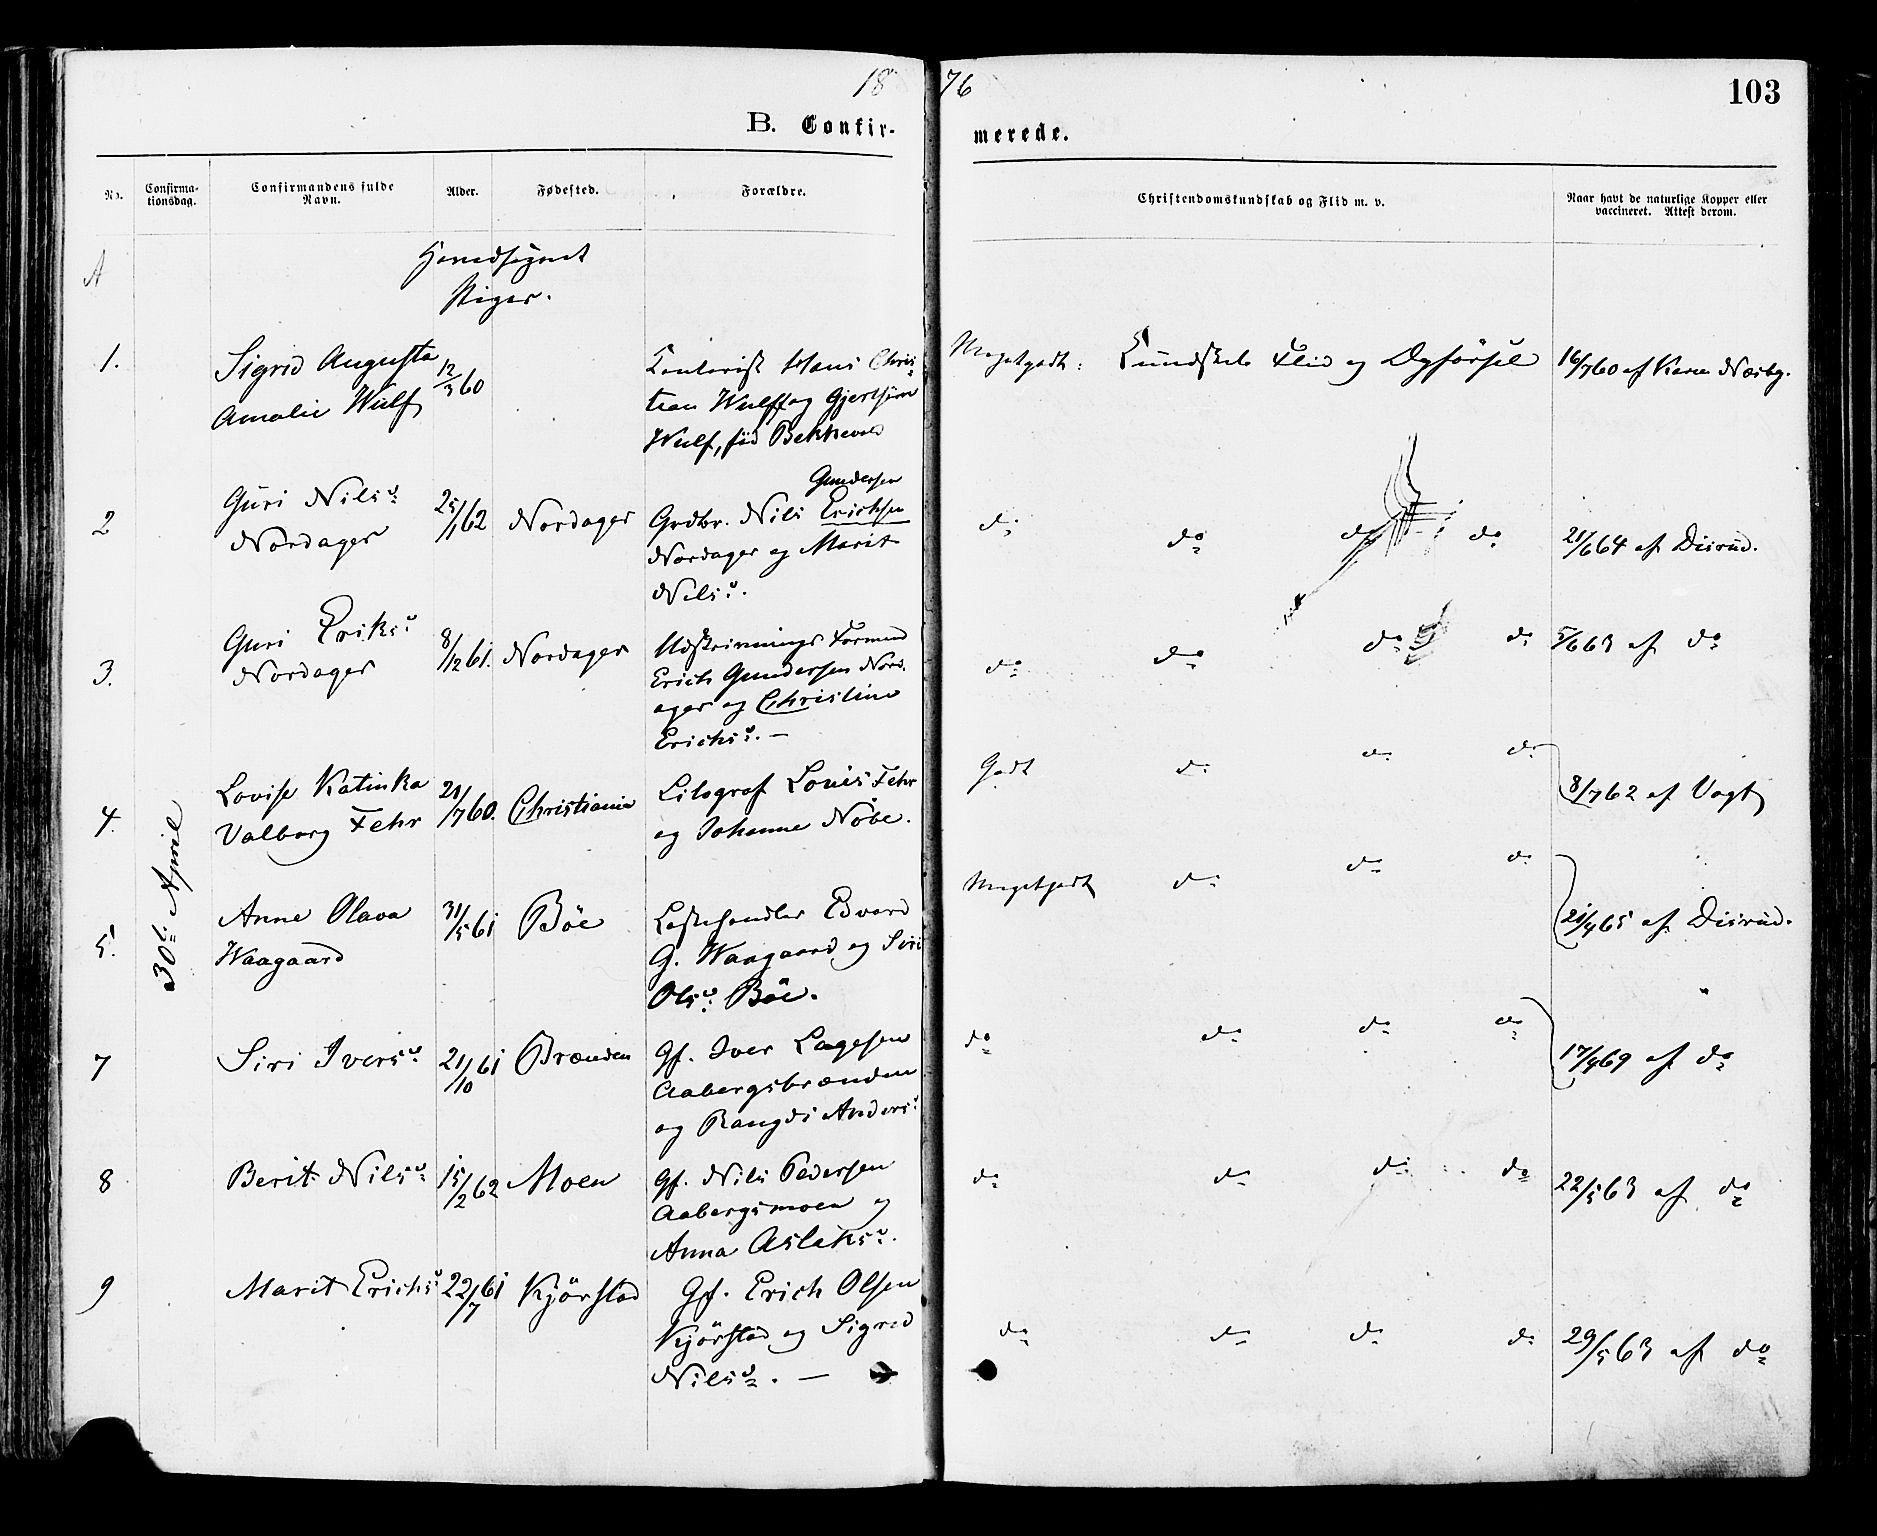 18 76
103
B. Confir- merede.
No.
Confirma-
tionsdag.
Confirmandens fulde
Navn.
Alder.
Fødested.
Forældre.
Christendomskundskab og Flid m. v.
Naar havt de naturlige Kopper eller
vaccineret. Attest derom.
A
Hovedsognet
Piger.
30te April
1.
Sigrid Augusta
Amalie Wulf
12/3 60
Kontorist Hans Chris-
tian Wulff og Gjertsine
Wulf, fød Bekkevold
Megetgodt. Kundskab Flid og Opførsel
16/7 60 af Karen Næsby.
2
Guri Nilsd.
Nordager
25/1 62
Nordager
Gundersen
Grdbr. Nils Erichsen
Nordager og Marit
Nilsd.
do do do do
21/6 64 af Disrud.
3.
Guri Eriksd.
Nordager
8/12 61.
Nordager
Udskrivnings Formand
Erich Gundersen Nord-
ager og Christine
Erichsd. —
do do do do
5/6 63 af do
4.
Lovise Katinka
Valborg Fehr
21/7 60.
Christiania
Litograf Louis Fehr
og Johanne Nøbe.
Godt do do do
8/7 62 af Vogt
5.
Anne Olava
Waagaard
31/5 61
Böe
Edvard
G. Waagaard og Siri
Olsd. Böe.
Megetgodt do do do
21/4 65 af Disrud.
7
Siri Iversd.
21/10 61
Brænden
Gf. Iver Lagesen
Aabergsbrænden
og Rangdi Andersd.
do do do do
17/4 69 af do
8
Berit Nilsd.
15/2 62
Moen
Gf. Nils Pedersen
Aabergsmoen og
Anna Aslaksd.
do do do do
22/5 63 af do
9
Marit Erichsd.
22/7 61
Kjörstad
Gf. Erich Olsen
Kjörstad og Sigrid
Nilsd. —
do do do do
29/5 63 af do